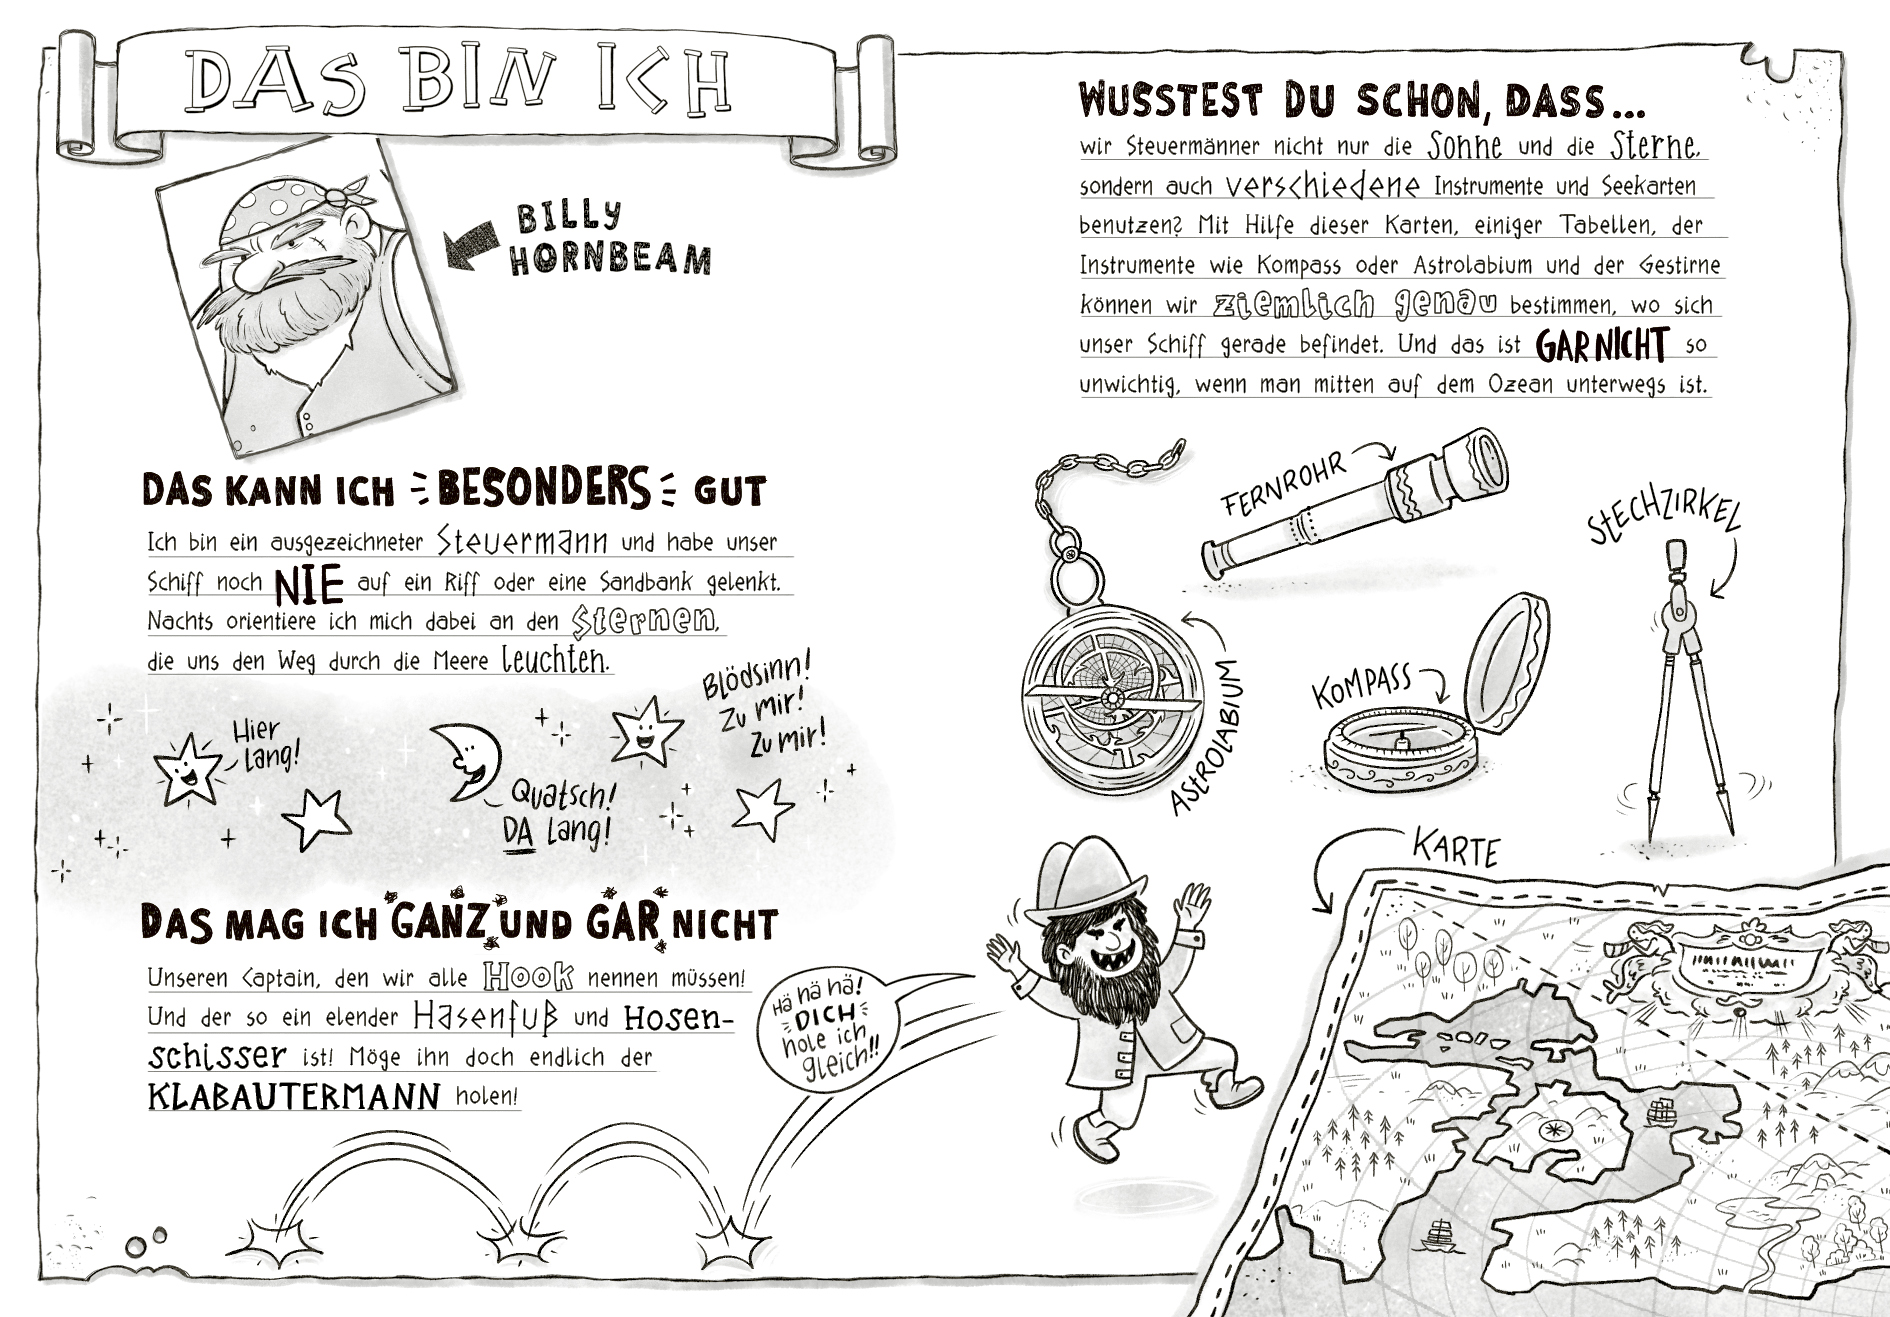 DAS BIN ICH
BILLY
HORNBEAM
DAS KANN ICH BESONDERS GUT
Ich bin ein ausgezeichneter Steuermann und habe unser
Schiff noch NIE auf ein Riff oder eine Sandbank gelenkt.
Nachts orientiere ich mich dabei an den Sternen,
die uns den Weg durch die Meere leuchten.
Hier
lang!
Quatsch!
DA lang!
Blödsinn!
Zu mir!
Zu mir!
DAS MAG ICH GANZ UND GAR NICHT
Unseren Captain, den wir alle Hook nennen müssen!
Und der so ein elender Hasenfuß und Hosen-
schisser ist! Möge ihn doch endlich der
KLABAUTERMANN holen!
Hä hä hä!
DICH
hole ich
gleich!!
WUSSTEST DU SCHON, DASS...
wir Steuermänner nicht nur die Sonne und die Sterne,
sondern auch verschiedene Instrumente und Seekarten
benutzen? Mit Hilfe dieser Karten, einiger Tabellen, der
Instrumente wie Kompass oder Astrolabium und der Gestirne
können wir ziemlich genau bestimmen, wo sich
unser Schiff gerade befindet. Und das ist GAR NICHT so
unwichtig, wenn man mitten auf dem Ozean unterwegs ist.
FERNROHR
STECHZIRKEL
ASTROLABIUM
KOMPASS
KARTE